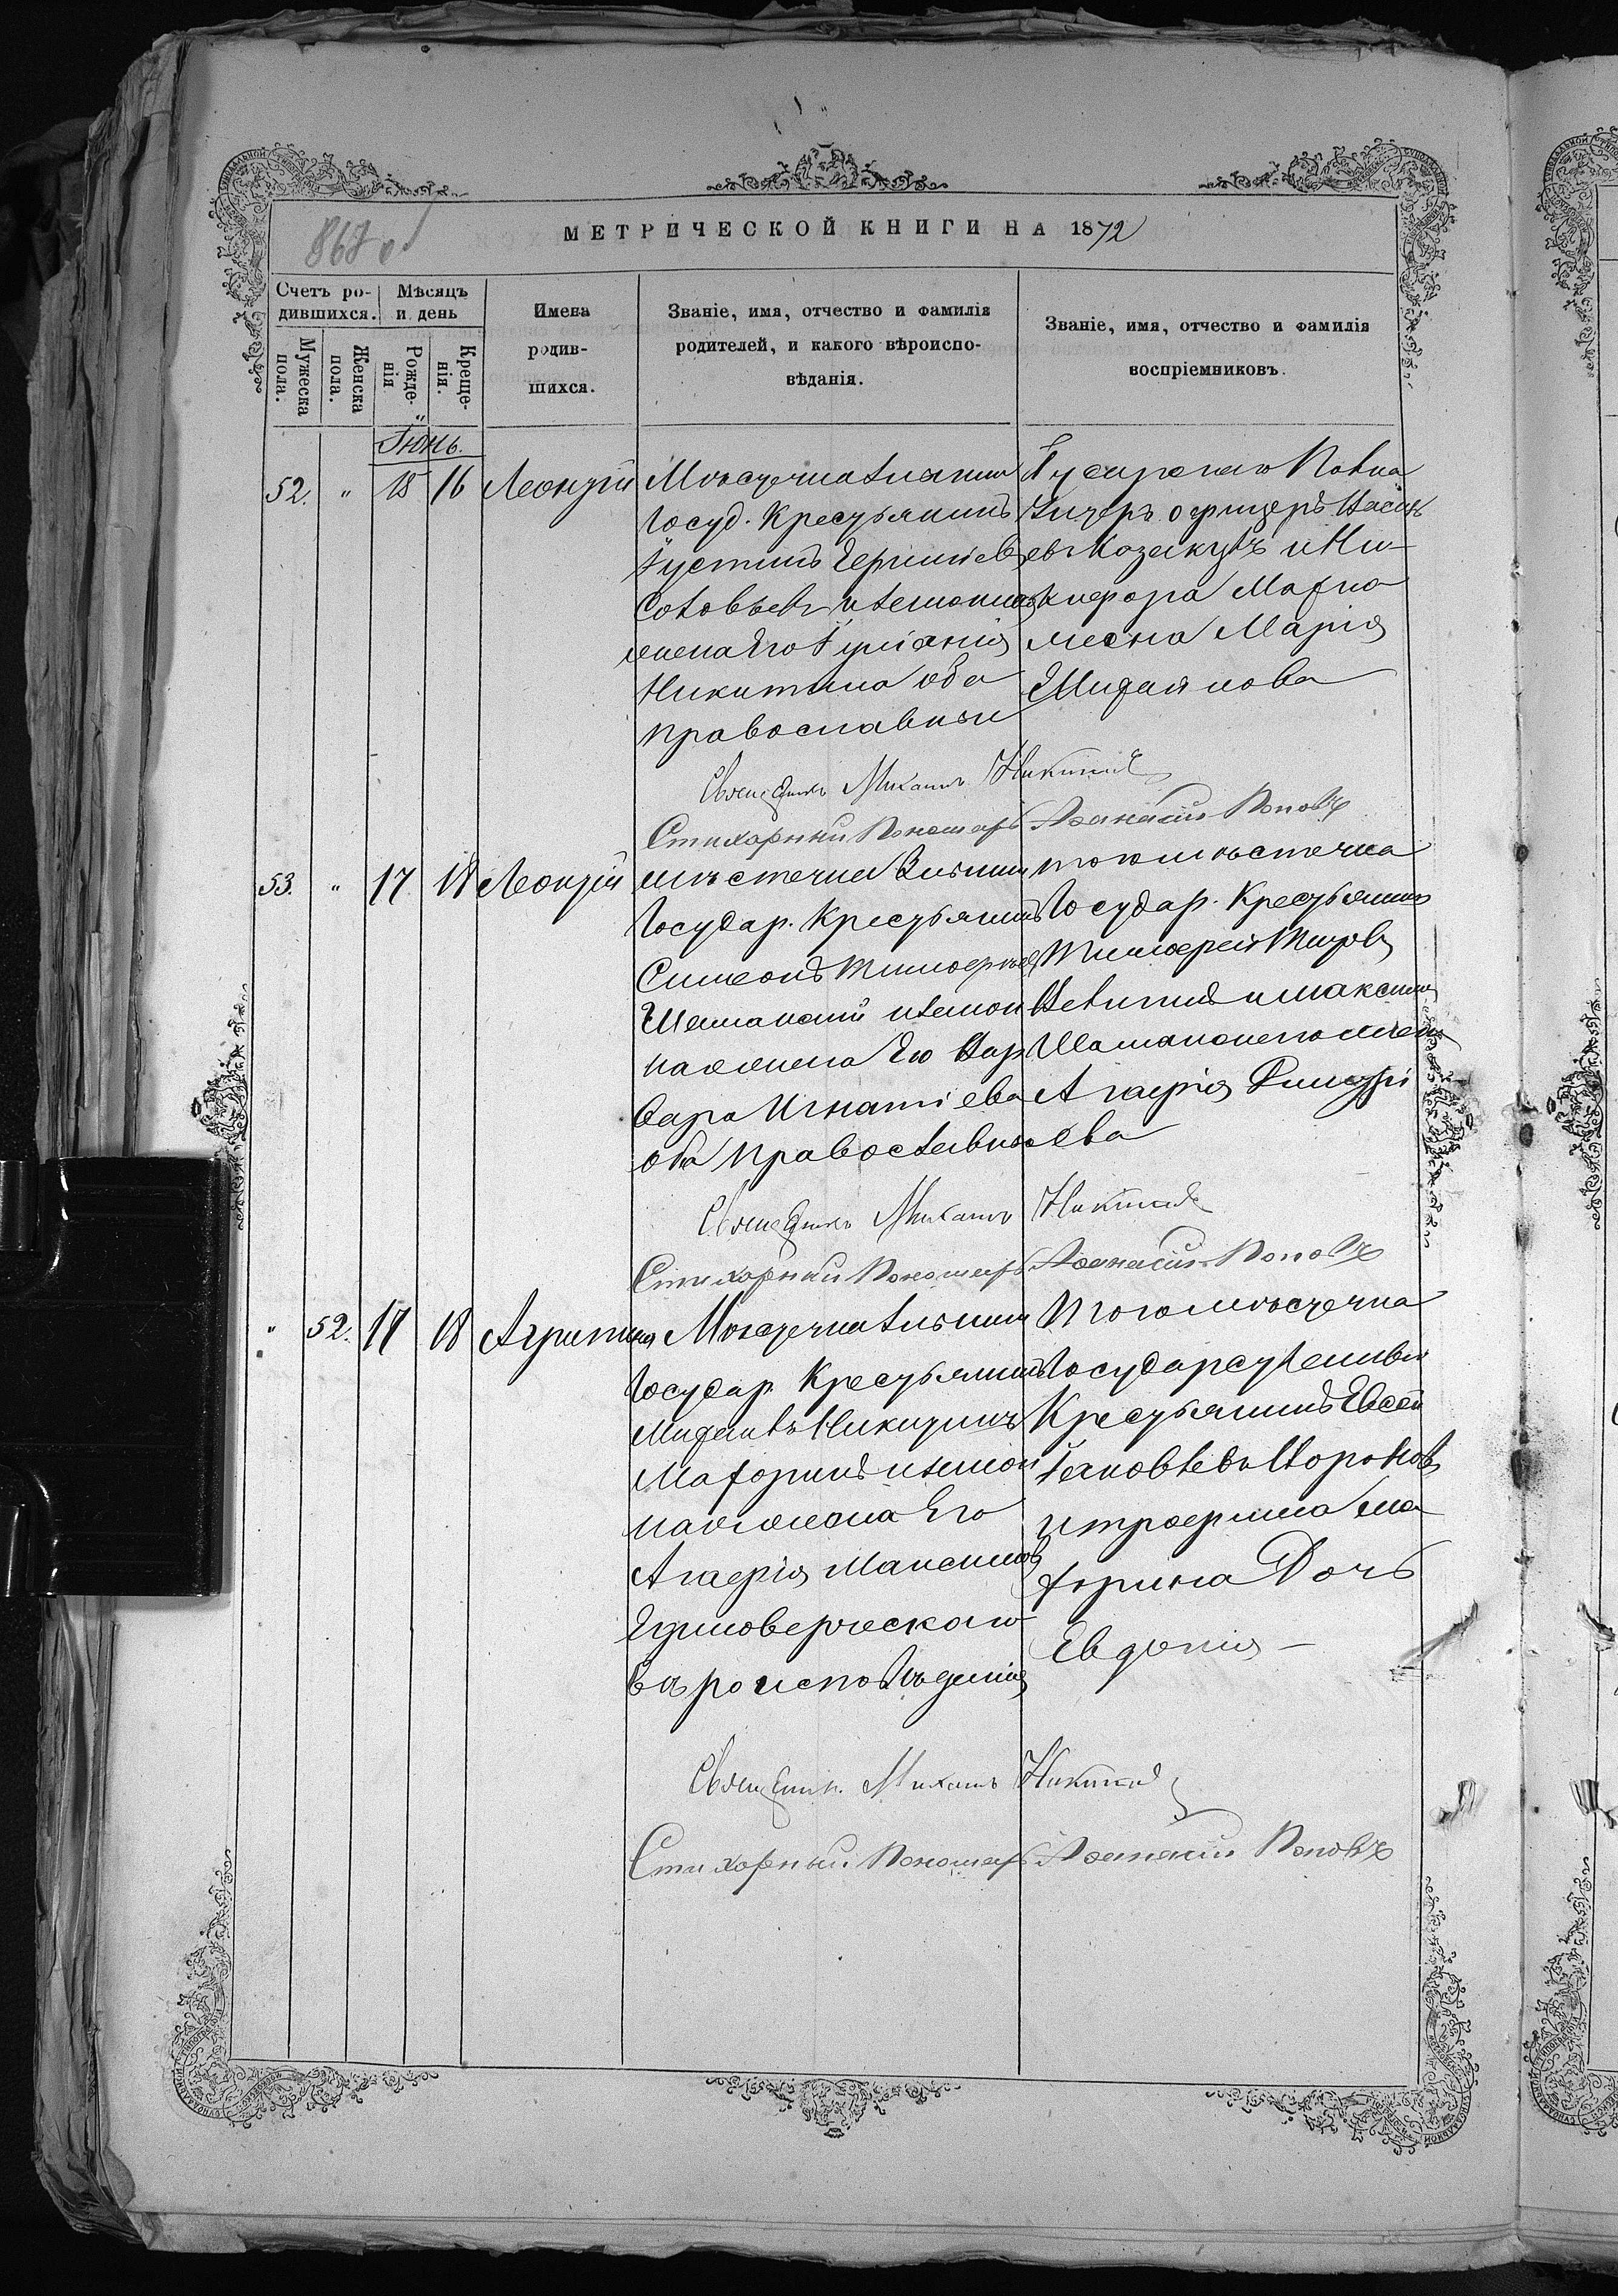 МЕТРИЧЕСКОЙ КНИГИ НА 1872
867 об
Счетъ ро-
дившихся.
Мужеска
пола.
Женска
пола.
Мѣсяцъ
и день
Рожде-
нія
Креще-
нія.
Имена
родив-
шихся.
Званіе, имя, отчество и фамилія
родителей, и какого вѣроиспо-
вѣданія.
Званіе, имя, отчество и фамилія
воспріемниковъ.
Іюнь.
52. " 15 16 Леонтій
Мѣстечка
Госуд. Крестьянинъ
Іустинъ
Соловьевъ и законная
жена Его Іуліанія
Никитина оба
православные
Унтеръ офицеръ
Козакулъ и Ни-
кифора
Марія
Михайлова
Священникъ Михаилъ Никитинъ
Стихарный Пономарь Афанасій Поповъ
53. " 17 18 Леонтій
мѣстечка
Государ. Крестьянинъ
Симеонъ Тимофеевъ
и закон
ная жена Его Вар
вара Игнатіева
оба православные
того мѣстечка
Государ. Крестьянинъ
Тимофей Титовъ
и Максима
Агафія
ева
Священникъ Михаилъ Никитинъ
Стихарный Пономарь Афанасій Поповъ
" 52. 17 18 Агрипина
Мѣстечка
Государ. Крестьянинъ
Михаилъ Никитинъ
и закон
ная жена Его
Агафія Максимова
Единоверческаго
вѣроисповѣданія
Того мѣстечка
Государственный
Крестьянинъ Евсей
Яковлевъ
и трофима Ма
Дочь
Евдокія
Священник. Михаилъ Никитинъ
Стихарный Пономарь Афанасій Поповъ